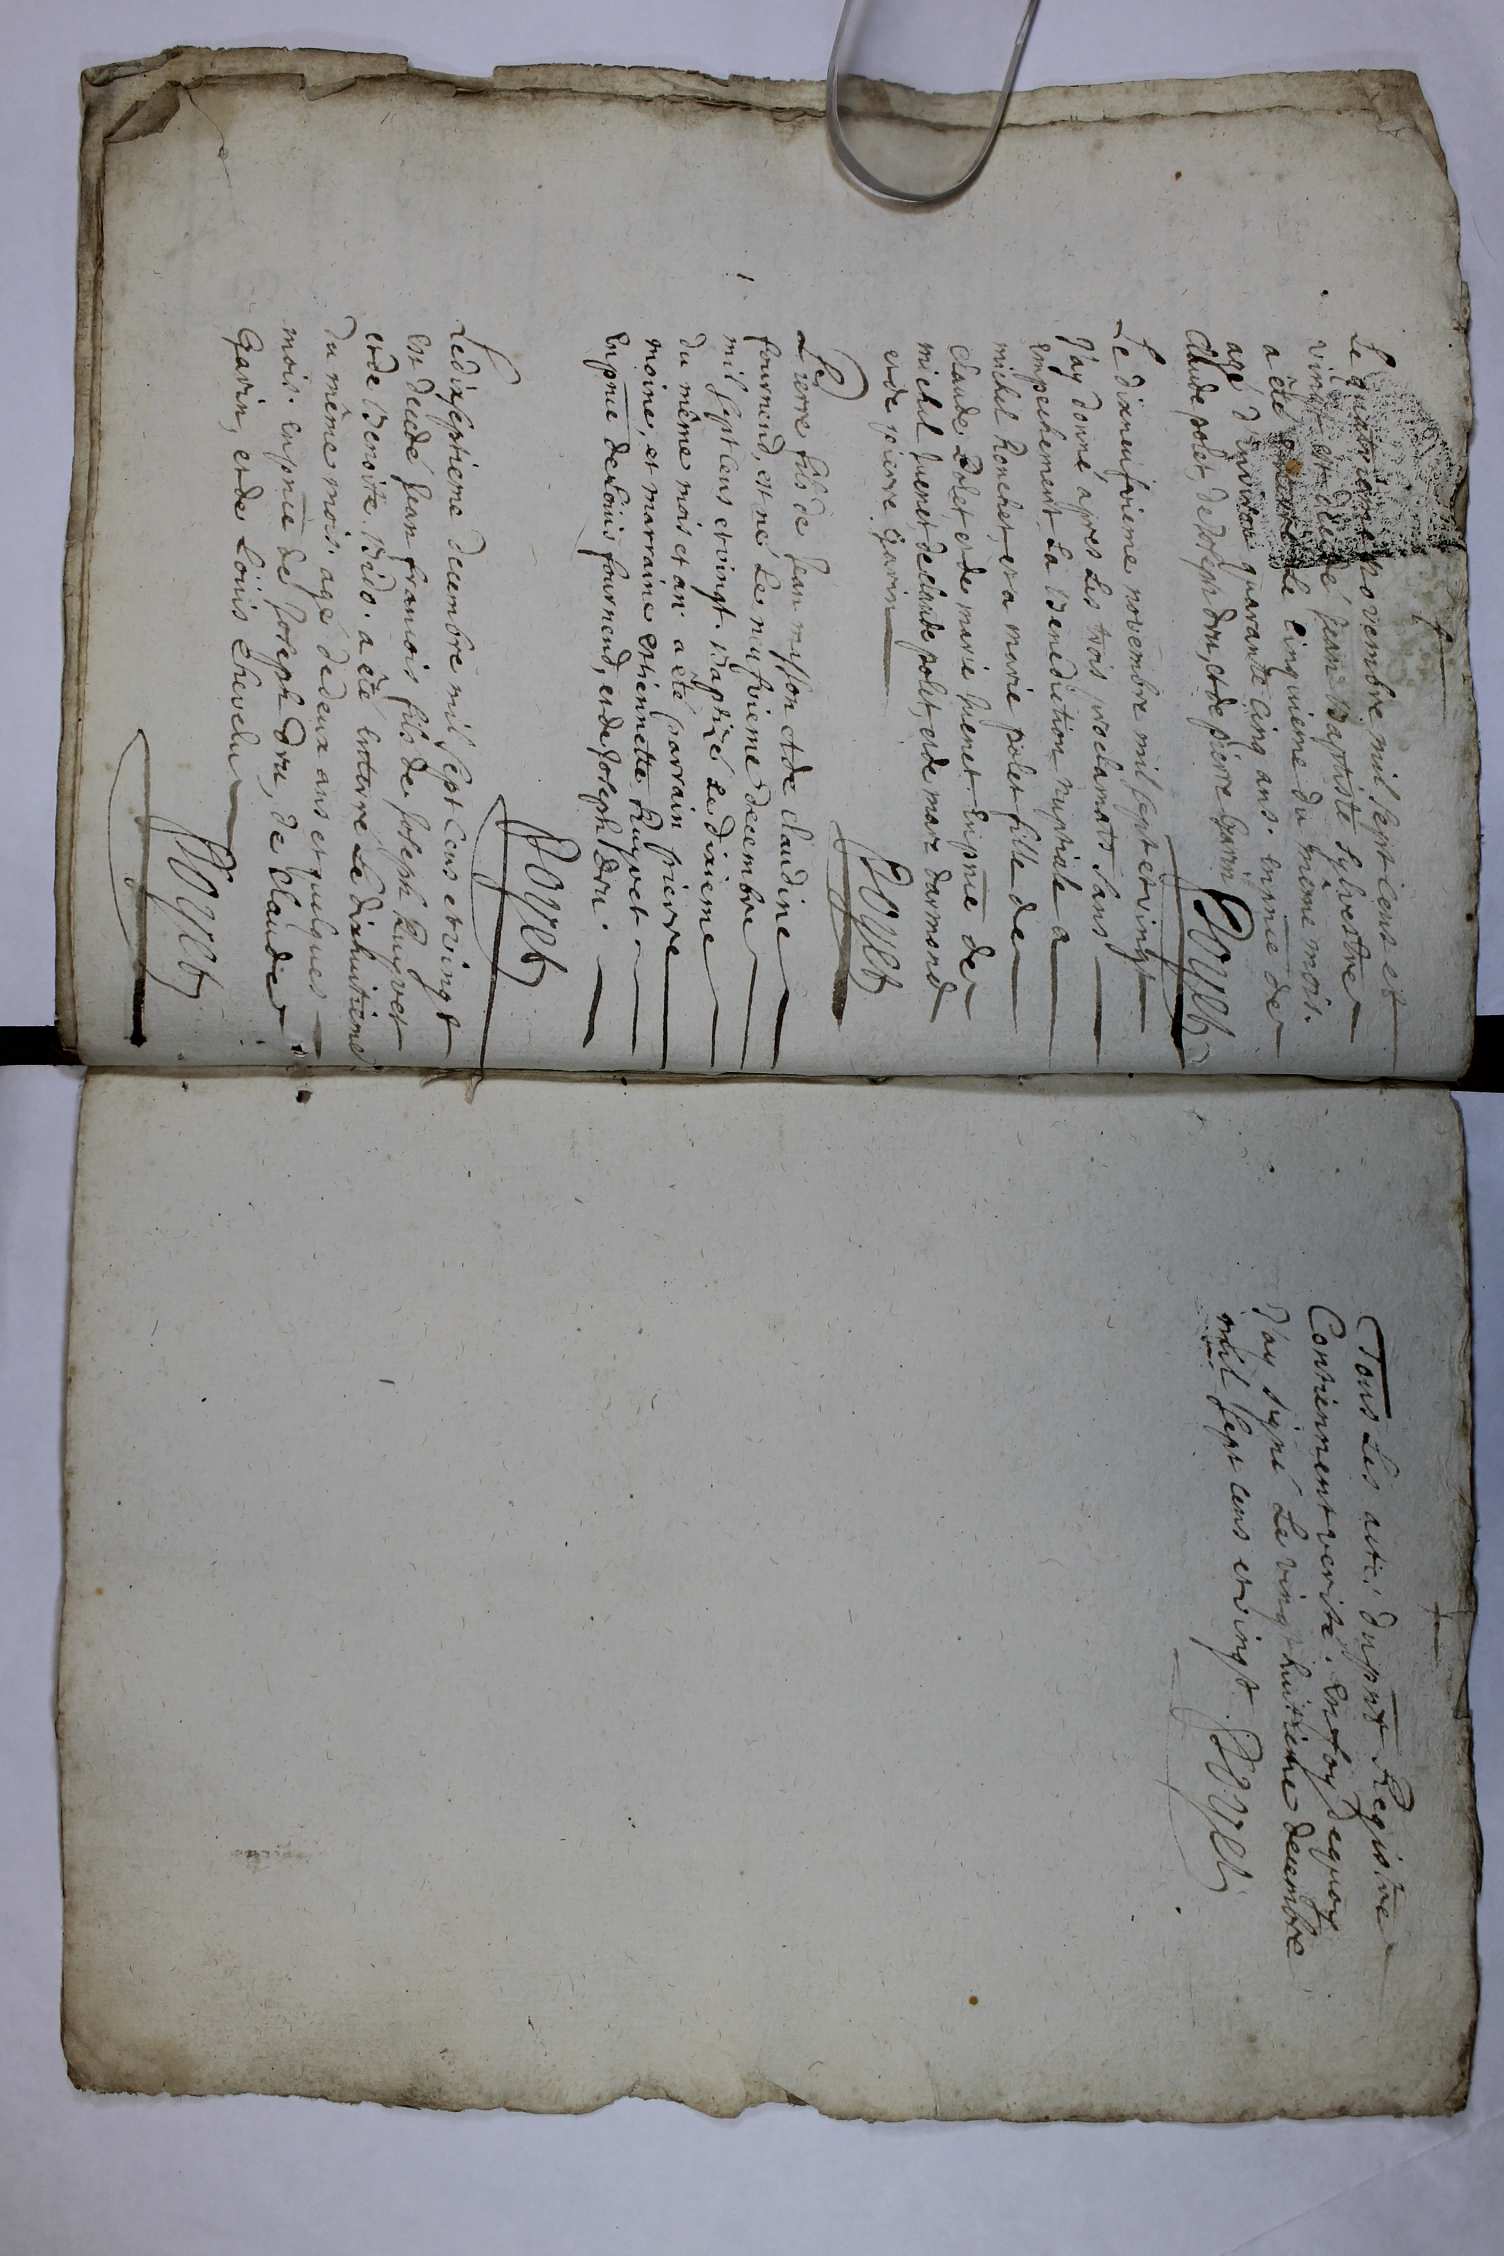 Le quatrieme novembre mil sept cens et
vingt est decedé jean Baptiste Sylvestre
a été enterré Le cinquieme du même mois.
agé d'environ quarante cinq ans. en pnce de
claude polet, de Joseph dru, et de pierre Garin
Poyet
Le dixneufvieme novembre mil sept et vingt
J'ay donné apres Les trois proclamats sans
empechement La Benediction nuptiale a
michel Ronchet, et a marie polet fille de
claude Polet et de marie huenet. En pnce de
michel huenet de claude polet, et de marc darmond
et de pierre Garin
Poyet
Pierre fils de Jean mysson et de claudine
fournend, est né Le neufvieme decembre
mil sept cens et vingt. Baptizé Le dixieme
du même mois et an. a été parrain pierre
moine, et marraine estiennette Ruyvet
En pnce de Louis fournend, et de Joseph Dru.
Poyet
Le dixseptieme decembre mil sept cens et vingt
est decedé Jean francois fils de Joseph Ruyvet
et de Benoite Bido. a été enterré Le dixhuitieme
du même mois. agé de deux ans et quelques
mois. en pnce de Joseph Dru, de claude
Garin, et de Louis Chevelu
Poyet
Tous Les actes du pnt Registre
Contiennent verité. En foy dequoy
J'ay signé Le vingt huitieme decembre
mil sept cens et vingt. Poyet